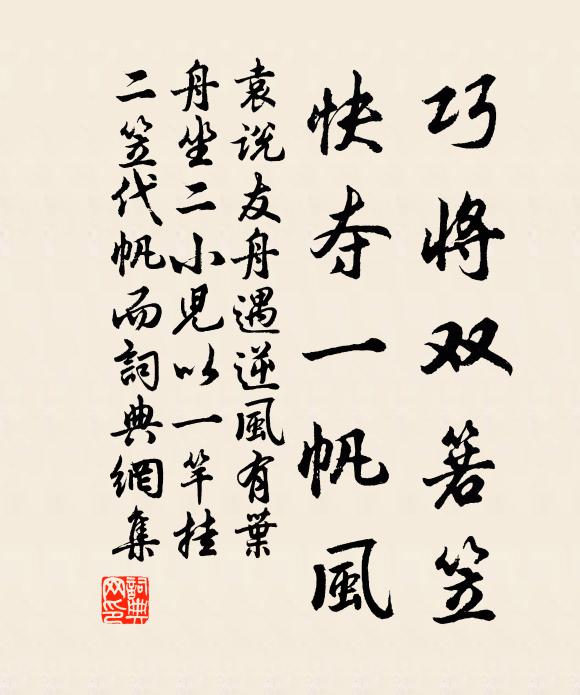 巧将双箬笠
快夺一帆風
袁说友舟遇逆風有葉
舟坐二小児以一竿挂
二笠代帆而詞典網集
詞典網印